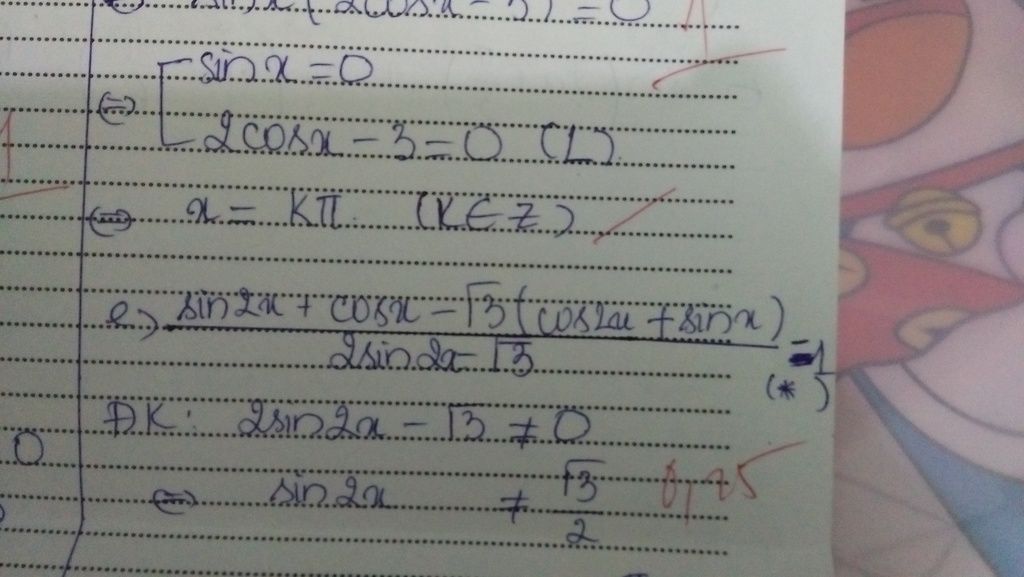 ⇔ sinx(2cosx - 3) = 0
⇔ [ sinx = 0
2cosx - 3 = 0 (L)
⇔ x = kπ. (k ∈ Z)
e, (sin2x + cosx - √3(cos2x + sinx)) / (2sin2x - √3) = 1 (*)
ĐK: 2sin2x - √3 ≠ 0
⇔ sin2x ≠ √3/2 0,25